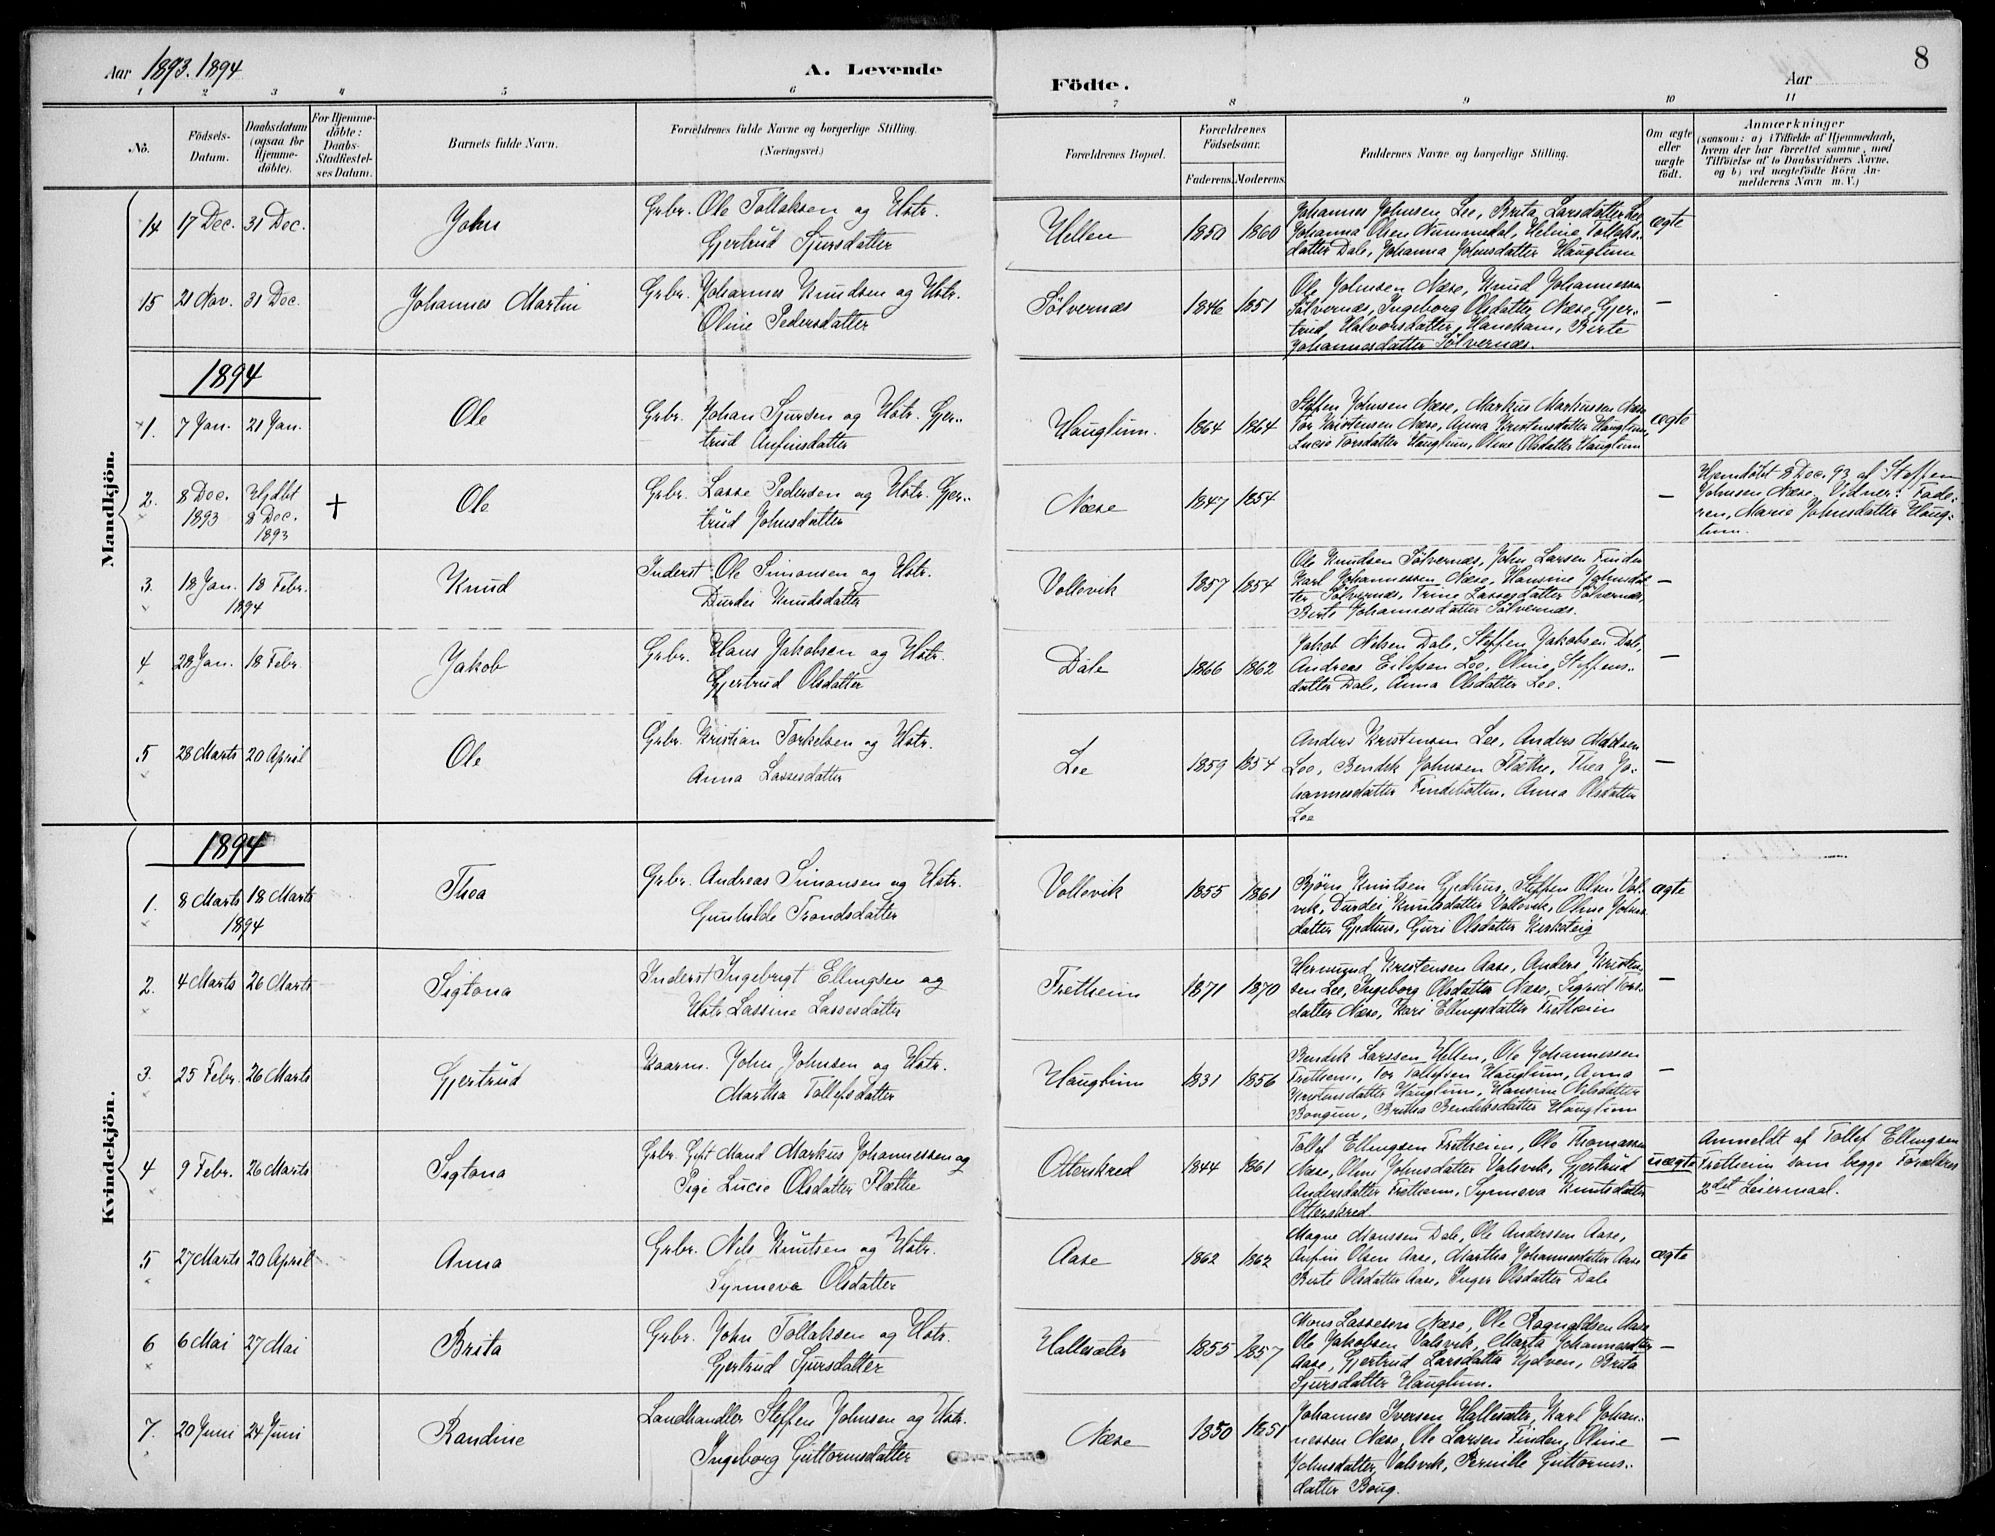 Aar 1893. 1894
A. Levende
Födte.
Aar
8
1 2 3 4 5 6 7 8 9 10 11
No.
Födsels-
Datum.
Daabsdatum
(ogsaa for
Hjemme-
döbte).
For Hjemme-
döbte:
Daabs-
Stadfæstel-
ses Datum.
Barnets fulde Navn.
Forældrenes fulde Navne og borgerlige Stilling.
(Næringsvei.)
Forældrenes Bopæl.
Forældrenes
Födselsaar.
Faderens. Moderens.
Faddernes Navne og borgerlige Stilling.
Om ægte
eller
uægte
födt.
Anmærkninger
(saasom: a) i Tilfælde af Hjemmedaab,
hvem der har forrettet samme, med
Tilföielse af to Daabsvidners Navne,
og b) ved uægtefödte Börn An-
melderens Navn m. V.)
Mandkjön.
14 17 Dec. 31 Dec. John
Grbr. Ole Tollaksen og Hstr.
Gjertrud Sjursdatter
Hellen 1850 1860
Johannes Johnsen Lee, Brita Larsdatter Lee,
Johanna Olsen Nummedal, Helene Tollaks-
datter Dale, Johanna Johnsdatter Hauglum
ægte
15 21 Nov. 31 Dec. Johannes Martin
Grbr. Johannes Knudsen og Hstr.
Oline Pedersdatter
Sölvernæs 1846 1851
Ole Johnsen Næse, Knud Johannessen
Sölvernæs, Ingeborg Olsdatter Næse, Gjer-
trud Halvorsdatter Hanekam, Birte
Johannesdatter Sölvernæs.
—
1894
1. 7 Jan. 21 Jan. Ole
Grbr. Johan Sjursen og Hstr. Gjer-
trud Anfinsdatter
Hauglum. 1864 1864
Steffen Johnsen Næse, Markus Markussen Næse
Tor Kristensen Næse, Anna Kristensdatter Hauglum,
Lucie Torsdatter Hauglum, Oline Olsdatter Hauglum
ægte
2. 8 Dec. 1893 Hjdbt 8 Dec. 1893 † Ole
Grbr. Lasse Pedersen og Hstr. Gjer-
trud Johnsdatter
Næse 1847 1854
—
Hjemdöbt 8 Dec. 93 af Steffen
Johnsen Næse. Vidner: Fade-
ren, Marie Johnsdatter Haug-
lum.
3 18 Jan. 18 Febr. 1894 Knud
Inderst Ole Simonsen og Hstr.
Durdei Knudsdatter
Vollevik 1857 1854
Ole Knudsen Sölvernæs, John Larsen Finden
Karl Johannessen Næse, Hansine Johnsdat-
ter Sölvernæs, Trine Lassesdatter Sölvernæs,
Birte Johannesdatter Sölvernæs.
—
4 28 Jan. 18 Febr. Jakob
Grbr. Hans Jakobsen og Hstr.
Gjertrud Olsdatter
Dale 1866 1862
Jakob Nilsen Dale, Steffen Jakobsen Dale,
Andreas Eilefsen Lee, Oline Steffens-
datter Dale, Anna Olsdatter Lee.
—
5 28 Marts 20 April Ole
Grbr. Kristian Torkelsen og Hstr.
Anna Lassesdatter
Lee 1859 1854
Anders Kristensen Lee, Anders Madsen
Lee, Bendik Johnsen Flæthe, Thea Jo-
hannesdatter Findebotten, Anna Olsdatter
Lee
—
Kvindekjön.
1894
1. 8 Marts 18 Marts 1894 Thea
Grbr. Andreas Simonsen og Hstr.
Gunhilde Trondsdatter
Vollevik 1855 1861
Björn Knutsen Gjedhus, Steffen Olsen Val-
vik, Durdei Knutsdatter Vollevik, Oline Johns-
datter Gjedhus, Guri Olsdatter Kirketeig
ægte
2. 4 Marts 26 Marts Sigtona
Inderst Ingebrigt Ellingsen og
Hstr Lassine Lassesdatter
Fretheim 1871 1870
Hermund Kristensen Aase, Anders Kristen-
sen Lee, Ingeborg Olsdatter Næse, Sigrid Tors-
datter Næse, Kari Ellingsdatter Fretheim
—
3. 25 Febr. 26 Marts Gjertrud
Kaarm. John Johnsen og Hstr.
Martha Tollefsdatter
Hauglum 1831 1856
Bendik Larssen Hellen, Ole Johannessen
Fretheim, Tor Tollefsen Hauglum, Anna
Kristensdatter Hauglum, Hansine Nilsdatter
Bongum, Britha Bendiksdatter Hauglum
—
4 9 Febr. 26 Marts Sigtona
Grbr. Gift Mand Markus Johannessen og
Pige Lucie Olsdatter Flæthe
Otterskred 1844 1861
Tollef Ellingsen Fretheim, Ole Thomassen
Næse, Oline Johnsdatter Valsvik, Gjertrud
Andersdatter Fretheim, Synneva Knutsdatter
Otterskred
uægte
Anmeldt af Tollef Ellingsen
Fretheim som begge Forældres
2det Leiermaal.
5 27 Marts 20 April Anna
Grbr. Nils Knutsen og Hstr.
Synneva Olsdatter
Aase 1862 1862
Magne Monssen Dale, Ole Anderssen Aase,
Anfin Olsen Aase, Martha Johannesdatter Aase
Birte Olsdatter Aase, Inger Olsdatter Dale
ægte
6 6 Mai 27 Mai Brita
Grbr. John Tollaksen og Hstr.
Gjertrud Sjursdatter
Hallesæter 1855 1857
Mons Lassesen Næse, Ole Ragnaldsen Aase
Ole Jakobsen Valsvik, Marta Johannesdtter
Aase, Gjertrud Larsdatter Hjelven, Brita
Sjursdatter Hauglum.
—
7. 20 Juni 24 Juni Randine
Landhandler Steffen Johnsen og Hstr
Ingeborg Guttormsdatter
Næse 1850 1851
Johannes Iversen Hallesæter, Karl Johan-
nessen Næse, Ole Larsen Finden, Oline
Johnsdatter Valsvik, Pernille Guttorms-
datter Boug.
—